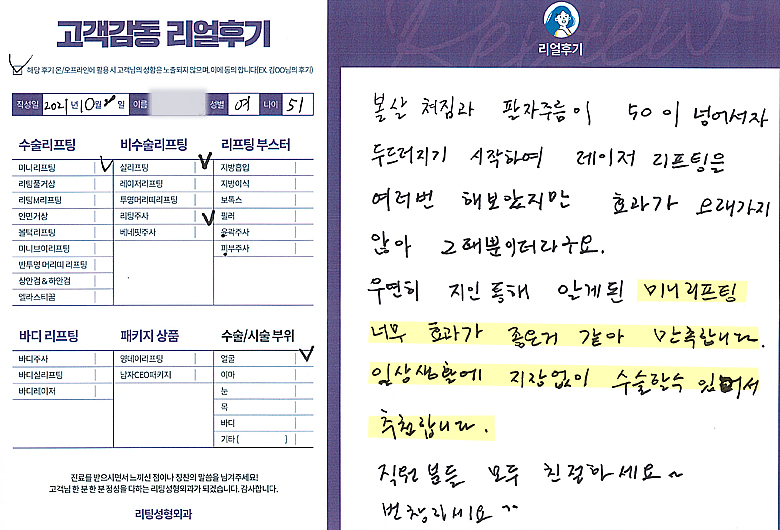 고객감동 리얼후기
해당 후기 온/오프라인에 활용 시 고객님의 성함은 노출되지 않으며, 이에 동의 합니다(EX. 김OO님의 후기)
작성일 2021년 10월 일 이름 성별 여 나이 51
수술리프팅
미니리프팅
리팅풀거상
리팅M리프팅
안면거상
볼턱리프팅
미니브이리프팅
반투명 머리띠 리프팅
상안검 & 하안검
엘라스티꿈
비수술리프팅
실리프팅
레이저리프팅
투명머리띠리프팅
리팅주사
베네핏주사
리프팅 부스터
지방흡입
지방이식
보톡스
필러
윤곽주사
피부주사
바디 리프팅
바디주사
바디실리프팅
바디레이저
패키지 상품
영데이리프팅
남자CEO패키지
수술/시술 부위
얼굴
이마
눈
목
바디
기타 ( )
진료를 받으시면서 느끼신 점이나 칭찬의 말씀을 남겨주세요!
고객님 한 분 한 분 정성을 다하는 리팅성형외과가 되겠습니다. 감사합니다.
리팅성형외과
Review
리얼후기
볼살 쳐짐과 팔자주름이 50이 넘어서자
두드러지기 시작하여 레이저 리프팅을
여러번 해보았지만 효과가 오래가지
않아 그때뿐이더라구요.
우연히 지인통해 알게된 미니리프팅
너무 효과가 좋은거 같아 만족합니다.
일상생활에 지장없이 수술할수 있어서
추천합니다.
직원분들 모두 친절하세요~
번창하세요 ^^